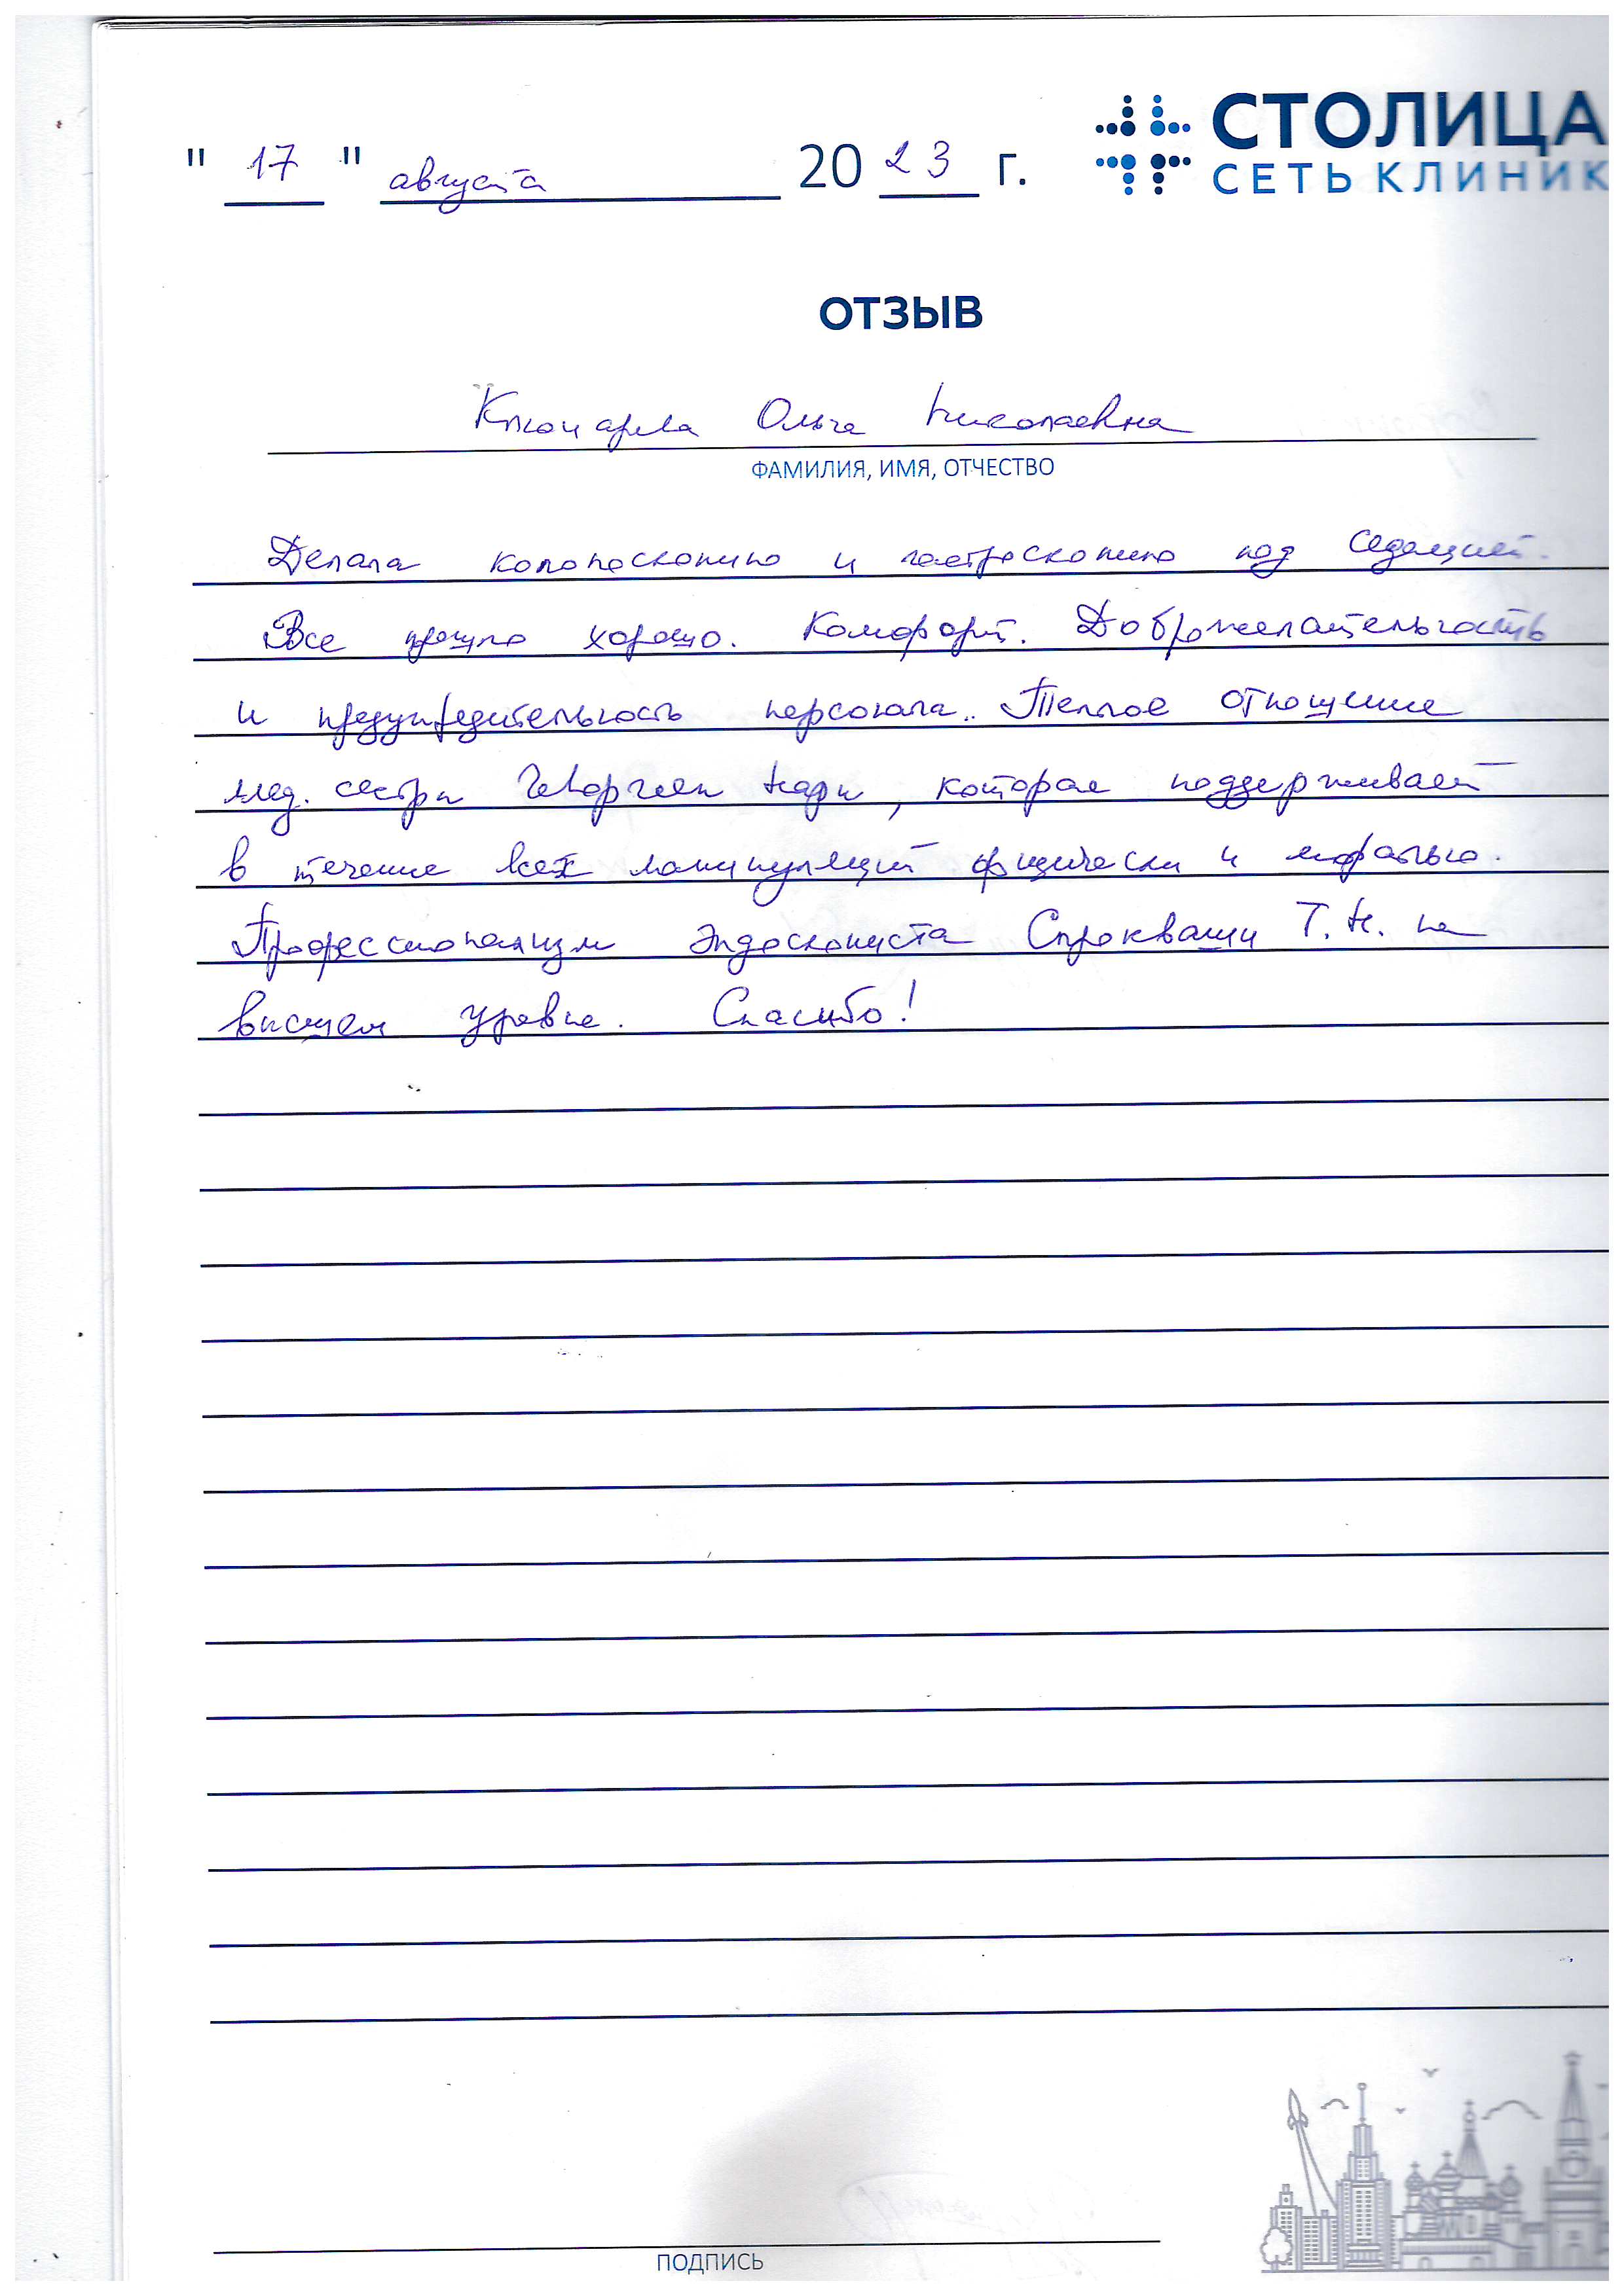 СТОЛИЦА
СЕТЬ КЛИНИК
" 17 " августа 20 23 г.
ОТЗЫВ
Ольга Николаевна
ФАМИЛИЯ, ИМЯ, ОТЧЕСТВО
Делала колоноскопию и гастроскопию под седацией.
Все прошло хорошо. Комфорт. Доброжелательность
и предупредительность персонала. Теплое отношение
мед. сестры Геворгян Нары, которая поддерживает
в течение всех манипуляций физически и морально.
Профессионализм эндоскописта Т. Н. на
высшем уровне. Спасибо!
ПОДПИСЬ